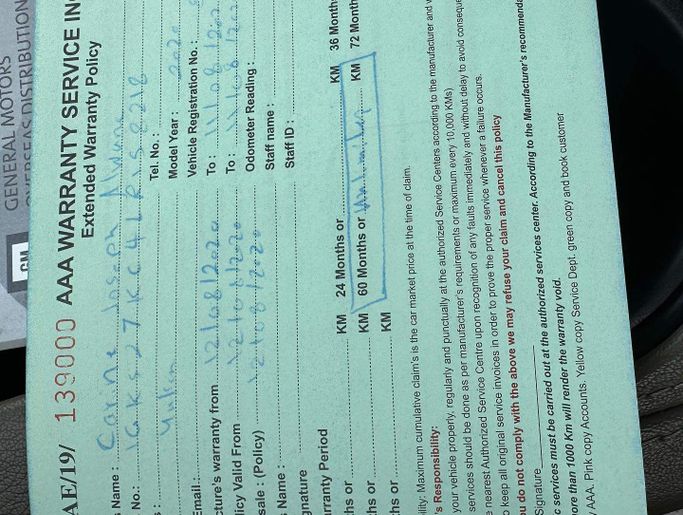 GENERAL MOTORS
OVERSEAS DISTRIBUTION
GM
AE/19/ 139000 AAA WARRANTY SERVICE IN
Extended Warranty Policy
Name : Carine Joseph
No.:
Tel. No. :
: Yukon
Model Year : 2020
Vehicle Registration No. :
Email :
cture's warranty from 12/08/2020 To : 11/08/202
licy Valid From 12/08/2020 To :
sale : (Policy) 12/08/2020 Odometer Reading :
Name : Staff name :
gnature Staff ID :
arranty Period
hs or KM 24 Months or KM 36 Month
hs or KM 60 Months or Unlimited KM 72 Mont
hs or KM
ility: Maximum cumulative claim's is the car market price at the time of claim.
's Responsibility:
your vehicle properly, regularly and punctually at the authorized Service Centers according to the manufacturer and
services should be done as per manufacturer's requirements or maximum every 10,000 KMs)
nearest Authorized Service Centre upon recognition of any faults immediately and without delay to avoid conseque
keep all original service invoices in order to prove the proper service whenever a failure occurs.
u do not comply with the above we may refuse your claim and cancel this policy
Signature
c services must be carried out at the authorized services center. According to the Manufacturer's recommenda
ore than 1000 Km will render the warranty void.
AAA, Pink copy Accounts. Yellow copy Service Dept. green copy and book customer